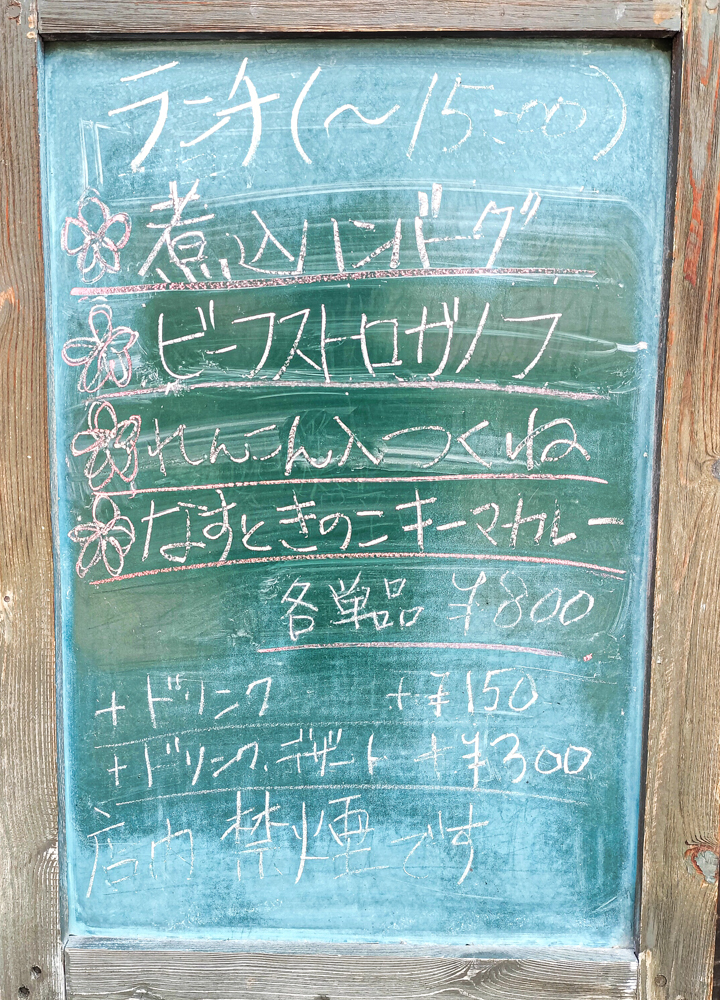 ランチ(〜15:00)
煮込ハンバーグ
ビーフストロガノフ
れんこん入つくね
なすときのこキーマカレー
各単品 ¥800
+ドリンク +¥150
+ドリンク、デザート +¥300
店内禁煙です